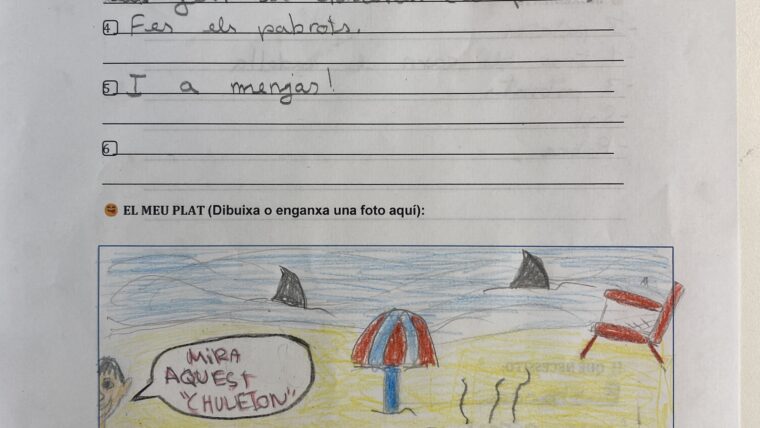 4 Fes els pabrots.
5 I a menjas!
6
EL MEU PLAT (Dibuixa o enganxa una foto aquí):
MIRA
AQUEST
"CHULETON"